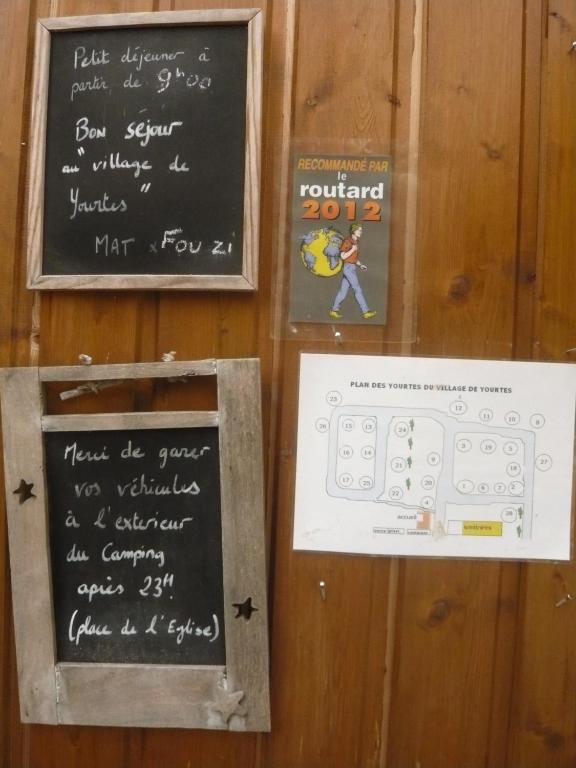 Petit déjeuner à
partir de 9h00
Bon séjour
au "village de
Yourtes"
MAT x FOUZI
RECOMMANDÉ PAR
le
routard
2012
Merci de garer
vos véhicules
à l'exterieur
du Camping
après 23H.
(place de l'Eglise)
PLAN DES YOURTES DU VILLAGE DE YOURTES
25 12 11 10 8
26 15 13 24 3 19 5 27
16 14 21 9 18
17 25 22 20 1 6 7 2
4 28
accueil
sanitaires